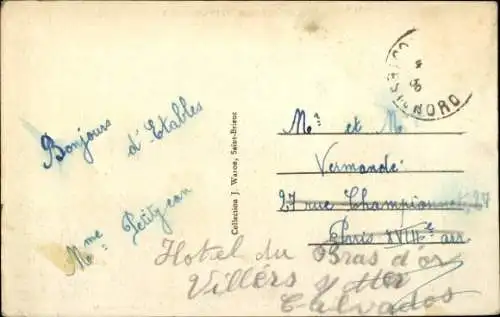 Bonjours
d'Etables
Mme Petitjean
Collection J. Waron, Saint-Brieuc
Mr et M
Vermande.
27 rue Championnet, 27
Paris XVIIIe arr
Hotel du Bras d'or
Villers s/Mer
Calvados
NORD